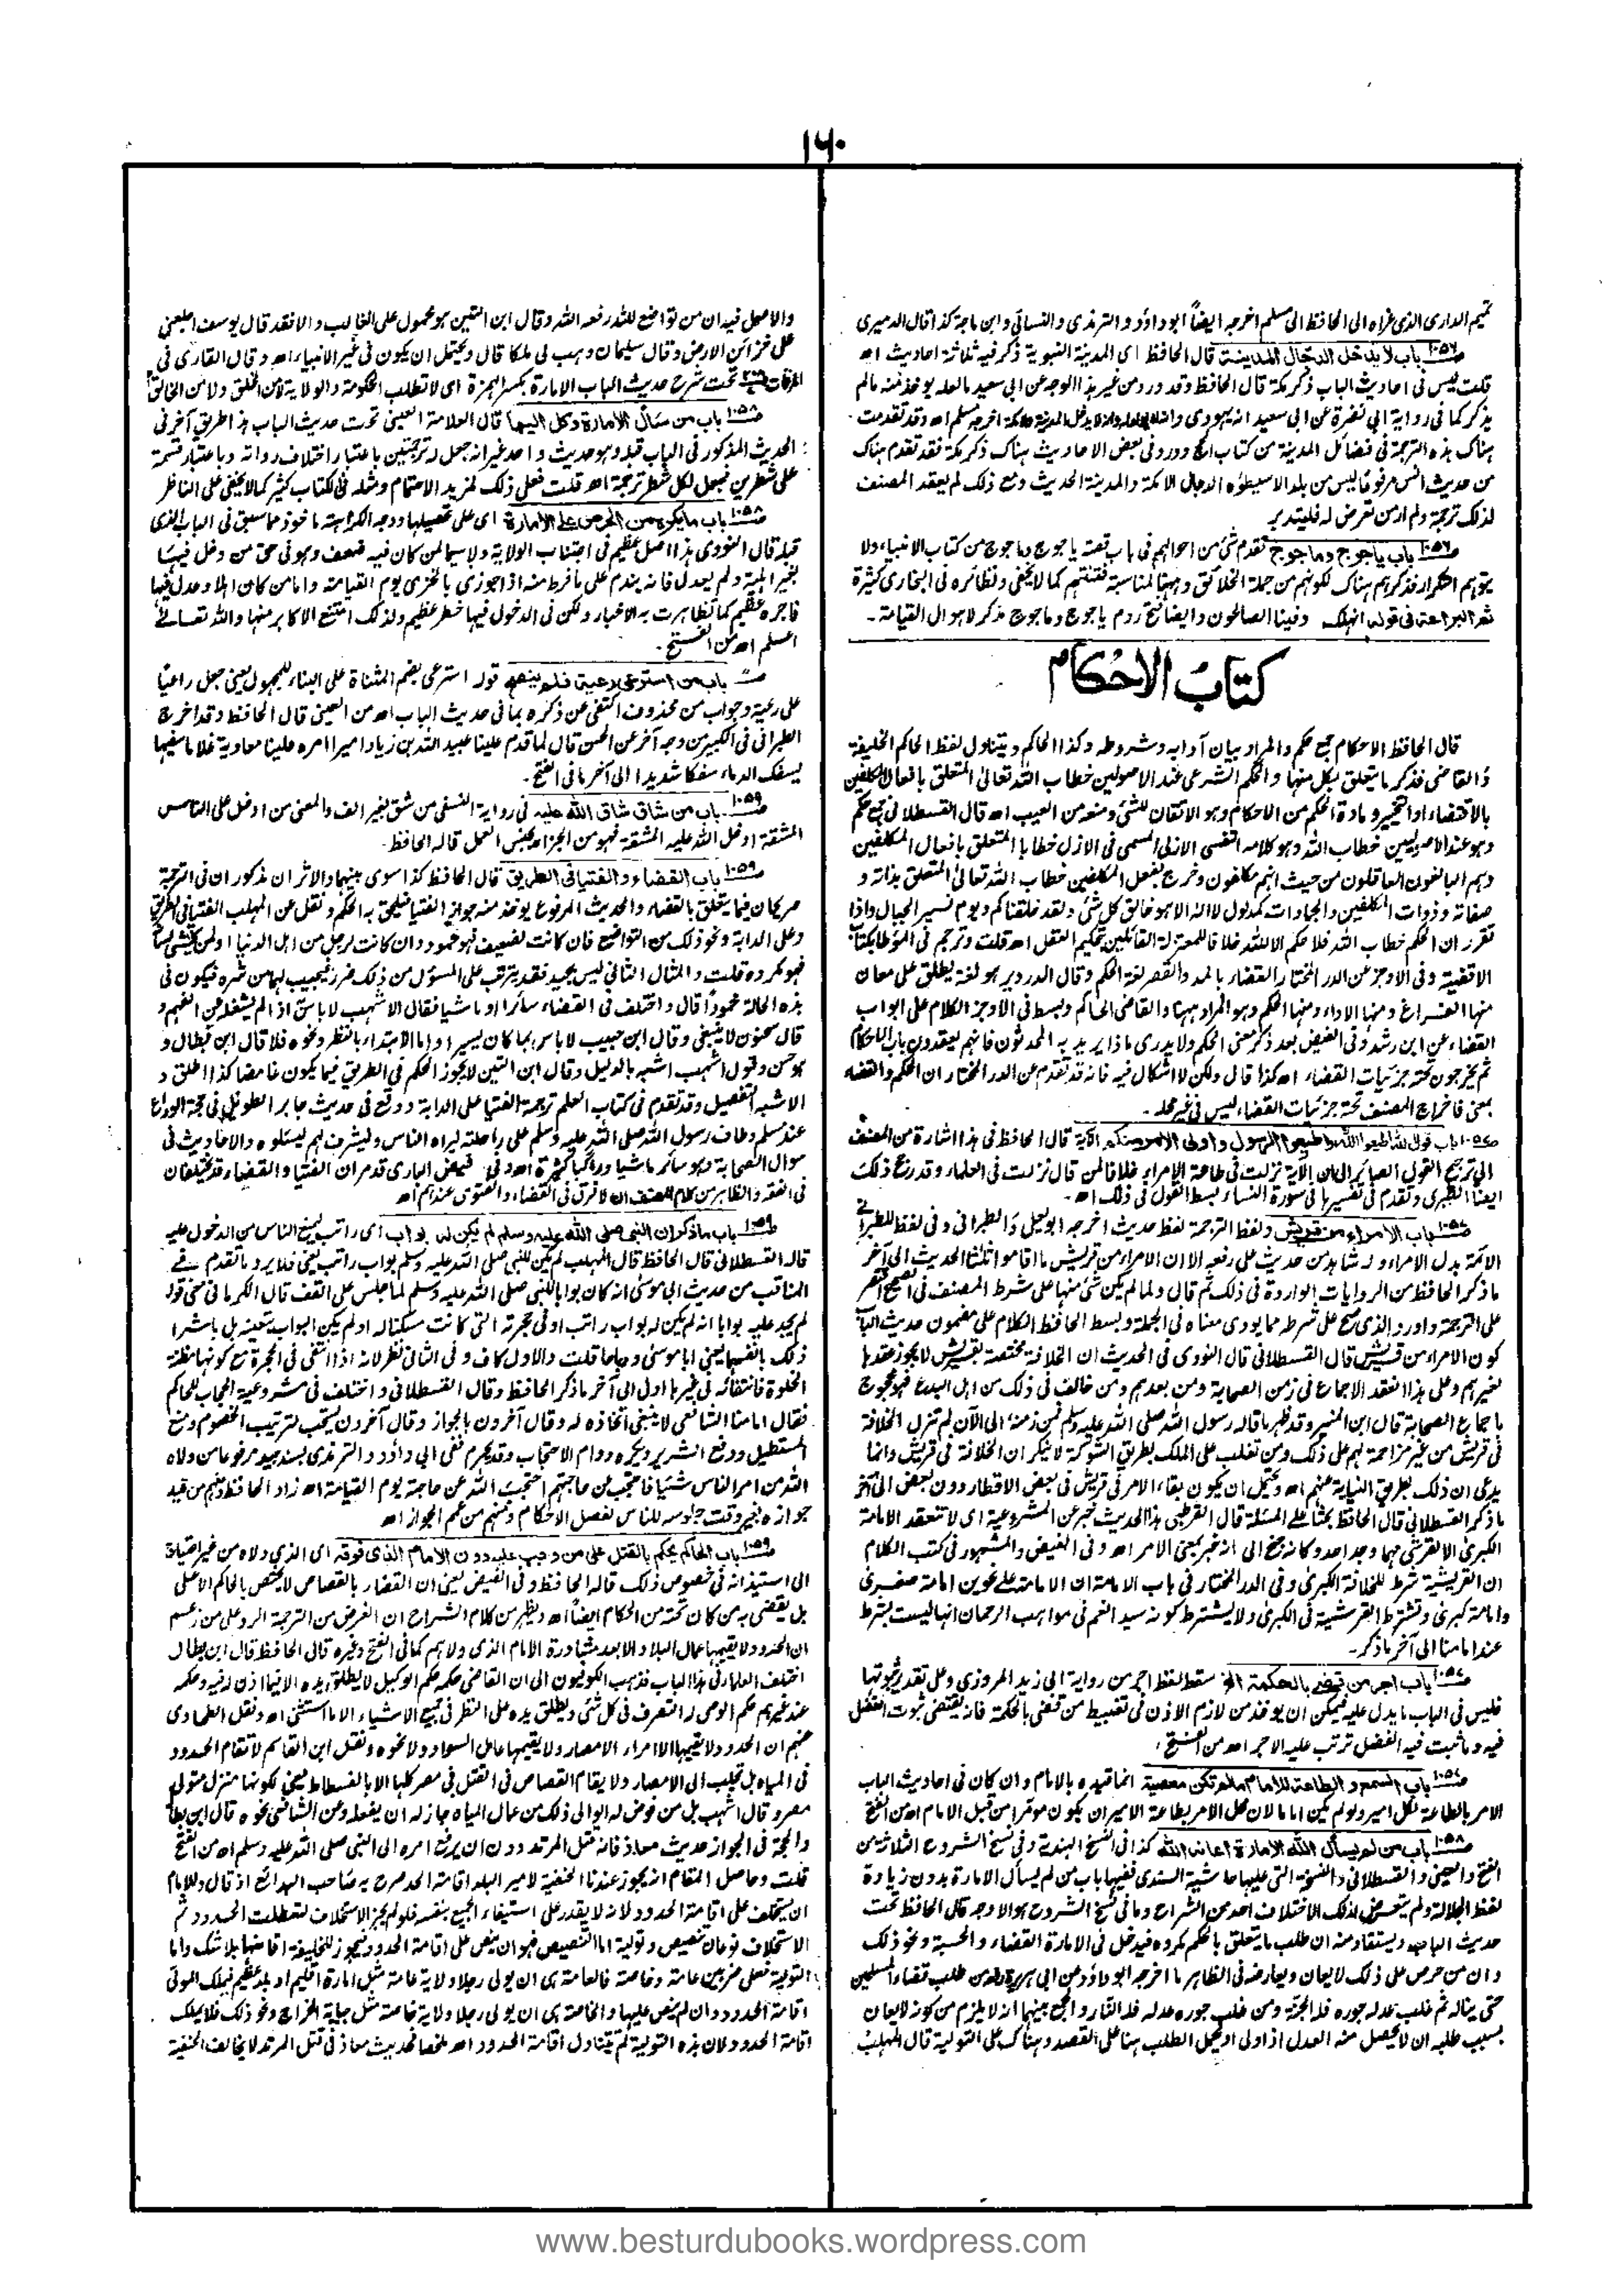 ١٦٠
تميم الدارى الذى عزاه الى الحافظ الى مسلم اخرجه ايضاً ابو داؤد و الترمذى و النسائى و ابن ماجة كذا قال الدميرى
باب لا يدخل الدجال المدينة قال الحافظ اى المدينة النبوية ذكر فيه ثلاثة احاديث اه
قلت ليس فى احاديث الباب ذكر مكة قال الحافظ وقد ورد من غير هذا الوجه عن ابى سعيد ما لعله يوخذ منه ما لم
يذكر كما فى رواية ابى نضرة عن ابى سعيد انه يهودى وانه لا يولد له وانه لا يدخل المدينة ولا مكة اخرجه مسلم اه وقد تقدمت
هناك هذه الترجمة فى فضائل المدينة من كتاب الحج وورد فى بعض الاحاديث هناك ذكر مكة فقد تقدم هناك
من حديث انس مرفوعا ليس من بلد الا سيطؤه الدجال الا مكة والمدينة الحديث ومع ذلك لم يعقد المصنف
لذلك ترجمة ولم ار من تعرض له فليتدبر
باب ياجوج وماجوج تقدم شئ من احوالهم فى باب قصة ياجوج وماجوج من كتاب الانبياء ولا
يتوهم التكرار فذكرهم هناك لكونهم من جملة الخلائق وههنا لمناسبة فتنتهم كما لا يخفى ونظائره فى البخارى كثيرة
ثم البراعة فى قوله انهلك وفينا الصالحون وايضا فتح ردم ياجوج وماجوج مذكر لاهوال القيامة ۔
كتابُ الاحكام
قال الحافظ الاحكام جمع حكم والمراد بيان آدابه وشروطه وكذا الحاكم ويتناول لفظ الحاكم الخليفة
والقاضى فذكر ما يتعلق بكل منهما والحكم الشرعى عند الاصوليين خطاب الله تعالىٰ المتعلق بافعال المكلفين
بالاقتضاء او التخيير ومادة الحكم من الاحكام وهو الاتقان للشئ ومنعه من العيب اه قال القسطلانى جمع حكم
وهو عند الاصوليين خطاب الله وهو كلامه النفسى الازلى المسمى فى الازل خطابا المتعلق بافعال المكلفين
وهم البالغون العاقلون من حيث انهم مكلفون وخرج بفعل المكلفين خطاب الله تعالىٰ المتعلق بذاته و
صفاته وذوات المكلفين والجمادات كمدلول لا اله الا هو خالق كل شئ ولقد خلقناكم ويوم نسير الجبال واذا
تقرر ان الحكم خطاب الله فلا حكم الا لله خلافا للمعتزلة القائلين بتحكيم العقل اه قلت وترجم فى المؤطا بكتاب
الاقضية وفى الاوجز عن الدر المختار القضاء بالمد والقصر لغة الحكم وقال الدردير هو لغة يطلق على معان
منها الفراغ ومنها الاداء ومنها الحكم وهو المراد ههنا والقاضى الحاكم وبسط فى الاوجز الكلام على ابواب
القضاء عن ابن رشد وفى الفيض بعد ذكر معنى الحكم ولا يدرى ماذا يريد به المحدثون فانهم يعقدون باب الاحكام
ثم يخرجون تحته جزئيات القضاء اه كذا قال ولكن لا اشكال فيه فانه قد تقدم عن الدر المختار ان الحكم والقضاء
بمعنى فاخراج المصنف تحته جزئيات القضاء ليس فى غير محله ۔
باب قول الله اطيعوا الله واطيعوا الرسول واولى الامر منكم الآية قال الحافظ فى هذا اشارة من المصنف
الى ترجيح القول الصائر الى ان الآية نزلت فى طاعة الامراء خلافا لمن قال نزلت فى العلماء وقد رجح ذلك
ايضا الطبرى وتقدم فى تفسيرها فى سورة النساء بسط القول فى ذلك اه ۔
باب الامراء من قريش ولفظ الترجمة لفظ حديث اخرجه ابو يعلى والطبرانى وفى لفظ للطبرانى
الائمة بدل الامراء وله شاهد من حديث على رفعه الا ان الامراء من قريش ما اقاموا ثلثا الحديث الى آخر
ما ذكر الحافظ من الروايات الواردة فى ذلك ثم قال ولما لم يكن شئ منها على شرط المصنف فى الصحيح اقتصر
على الترجمة واورد الذى صح على شرطه مما يودى معناه فى الجملة وبسط الحافظ الكلام على مضمون حديث الباب
كون الامراء من قريش قال القسطلانى قال النووى فى الحديث ان الخلافة مختصة بقريش لا يجوز عقدها
لغيرهم وعلى هذا انعقد الاجماع فى زمن الصحابة ومن بعدهم ومن خالف فى ذلك من اهل البدع فهو محجوج
باجماع الصحابة قال ابن المنير وقد ظهر ما قاله رسول الله صلى الله عليه وسلم فمن زمنه الى الآن لم تزل الخلافة
فى قريش من غير مزاحمة لهم على ذلك ومن تغلب على الملك بطريق الشوكة لا ينكر ان الخلافة فى قريش وانما
يدعى ان ذلك بطريق النيابة عنهم اه ويحتمل ان يكون بقاء الامر فى قريش فى بعض الاقطار دون بعض الى آخر
ما ذكر القسطلانى قال الحافظ بحثا على المسئلة قال القرطبى هذا الحديث خبر عن المشروعية اى لا تنعقد الامامة
الكبرى الا لقرشى مهما وجد احد وكانه جنح الى انه خبر بمعنى الامر اه وفى الفيض والمشهور فى كتب الكلام
ان القرشية شرط للخلافة الكبرى وفى الدر المختار فى باب الامامة ان الامامة على نحوين امامة صغرى
وامامة كبرى وتشترط القرشية فى الكبرى ولا يشترط كونه سيدا نعم فى مواهب الرحمان انها ليست بشرط
عند امامنا الى آخر ما ذكر ۔
باب اجر من قضى بالحكمة الخ سقط لفظ اجر من رواية ابى زيد المروزى وعلى تقدير ثبوتها
فليس فى الباب ما يدل عليه فيمكن ان يوخذ من لازم الاذن فى تغبيط من قضى بالحكمة فانه يقتضى ثبوت الفضل
فيه وما ثبت فيه الفضل ترتب عليه الاجر اه من الفتح ،
باب السمع والطاعة للامام ما لم تكن معصية انما قيده بالامام وان كان فى احاديث الباب
الامر بالطاعة لكل امير ولو لم يكن اماما لان محل الامر بطاعة الامير ان يكون مؤمرا من قبل الامام اه من الفتح
باب من لم يسأل الله الامارة اعانه الله كذا فى النسخ الهندية وفى نسخ الشروح الثلاثة من
الفتح والعينى والقسطلانى والنسخة التى عليها حاشية السندى ففيها باب من لم يسأل الامارة بدون زيادة
لفظ الجلالة ولم يتعرض لذلك الاختلاف احد من الشراح وما فى نسخ الشروح هو الاوجه قال الحافظ تحت
حديث الباب ويستفاد منه ان طلب ما يتعلق بالحكم مكروه فيدخل فى الامارة القضاء والحسبة ونحو ذلك
وان من حرص على ذلك لا يعان ويعارضه فى الظاهر ما اخرجه ابو داؤد عن ابى هريرة رفعه من طلب قضاء المسلمين
حتى يناله ثم غلب عدله جوره فله الجنة ومن غلب جوره عدله فله النار والجمع بينهما انه لا يلزم من كونه لا يعان
بسبب طلبه ان لا يحصل منه العدل اذا ولى او يحمل الطلب هنا على القصد وهناك على التولية قال المهلب
والاصل فيه ان من تواضع لله رفعه الله وقال ابن التين هو محمول على الغالب والا فقد قال يوسف اجعلنى
على خزائن الارض وقال سليمان وهب لى ملكا قال ويحتمل ان يكون فى غير الانبياء اه وقال القارى فى
المرقات تحت شرح حديث الباب الامارة بكسر الهمزة اى لا تطلب الحكومة والولاية لا من الخلق ولا من الخالق
باب من سأل الامارة وكل اليها قال العلامة العينى تحت حديث الباب هذا طريق آخر فى
الحديث المذكور فى الباب قبله وهو حديث واحد غير انه جعل له ترجمتين باعتبار اختلاف رواته وباعتبار قسمته
على شطرين فجعل لكل شطر ترجمة اه قلت فعل ذلك لمزيد الاهتمام ومثله فى الكتاب كثير كما لا يخفى على الناظر
باب ما يكره من الحرص على الامارة اى على تحصيلها ووجه الكراهة ماخوذ مما سبق فى الباب الذى
قبله قال النووى هذا اصل عظيم فى اجتناب الولاية ولا سيما لمن كان فيه ضعف وهو فى حق من دخل فيها
بغير اهلية ولم يعدل فانه يندم على ما فرط منه اذا جوزى بالخزى يوم القيامة واما من كان اهلا وعدل فيها
فاجره عظيم كما تظاهرت به الاخبار ولكن فى الدخول فيها خطر عظيم ولذلك امتنع الاكابر منها والله تعالى
اعلم اه من الفتح ۔
باب من استرعى رعية فلم ينصح قوله استرعى بضم المثناة على البناء للمجهول يعنى جعل راعيا
على رعية وجواب من محذوف اكتفى عن ذكره بما فى حديث الباب اه من العينى قال الحافظ وقد اخرج
الطبرانى فى الكبير من وجه آخر عن الحسن قال لما قدم علينا عبيد الله بن زياد اميرا امره علينا معاوية غلاما سفيها
يسفك الدماء سفكا شديدا الى آخر ما فى الفتح ۔
باب من شاق شاق الله عليه فى رواية النسفى من شق بغير الف والمعنى من ادخل على الناس
المشقة ادخل الله عليه المشقة فهو من الجزاء بجنس العمل قاله الحافظ ۔
باب القضاء والفتيا فى الطريق قال الحافظ كذا سوى بينهما والاثران مذكوران فى الترجمة
صريحان فيما يتعلق بالقضاء والحديث المرفوع يوخذ منه جواز الفتيا فيلحق به الحكم ونقل عن المهلب الفتيا فى الطريق
وعلى الدابة ونحو ذلك من التواضع فان كانت لضعيف فهو محمود وان كانت لرجل من اهل الدنيا او لمن يخشى لسانه
فهو مكروه قلت والمثال الثانى ليس بجيد فقد يترتب على المسؤل من ذلك ضرر فيجيب ليامن شره فيكون فى
هذه الحالة محموداً قال واختلف فى القضاء سائرا او ماشيا فقال الاشهب لا باس اذا لم يشغله عن الفهم و
قال سحنون لا ينبغى وقال ابن حبيب لا باس بما كان يسيرا واما الابتداء بالنظر ونحوه فلا قال ابن بطال و
هو حسن وقول اشهب اشبه بالدليل وقال ابن التين لا يجوز الحكم فى الطريق فيما يكون غامضا كذا اطلق و
الاشبه التفصيل وقد تقدم فى كتاب العلم ترجمة الفتيا على الدابة ووقع فى حديث جابر الطويل فى حجة الوداع
عند مسلم وطاف رسول الله صلى الله عليه وسلم على راحلته ليراه الناس وليشرف لهم ليسئلوه والاحاديث فى
سوال الصحابة وهو سائر ماشيا وراكبا كثيرة اه وفى فيض البارى قد مر ان الفتيا والقضاء قد يختلفان
فى الفقه والظاهر من كلام المصنف ان لا فرق فى القضاء والفتوى عندهم اه
باب ما ذكر ان النبى صلى الله عليه وسلم لم يكن له بواب اى راتب ليمنع الناس من الدخول عليه
قاله القسطلانى قال الحافظ قال المهلب لم يكن للنبى صلى الله عليه وسلم بواب راتب يعنى فلا يرد ما تقدم فى
المناقب من حديث ابى موسىٰ انه كان بوابا للنبى صلى الله عليه وسلم لما جلس على القف قال الكرمانى معنى قوله
لم يجد عليه بوابا انه لم يكن له بواب راتب او فى حجرته التى كانت مسكنا له او لم يكن البواب بتعيينه بل باشرا
ذلك بانفسهما يعنى ابا موسىٰ ورباحا قلت والاول كاف وفى الثانى نظر لانه اذا انتفى فى الحجرة مع كونها مظنة
الخلوة فانتفائه فى غيرها اولى الى آخر ما ذكر الحافظ وقال القسطلانى واختلف فى مشروعية الحجاب للحاكم
فقال امامنا الشافعى لا ينبغى اتخاذه له وقال آخرون بالجواز وقال آخرون يستحب لترتيب الخصوم ومنع
المستطيل ودفع الشرير ويكره دوام الاحتجاب وقد يحرم ففى ابى داؤد والترمذى بسند جيد مرفوعا من ولاه
الله من امر الناس شيئا فاحتجب عن حاجتهم احتجب الله عن حاجته يوم القيامة اه زاد الحافظ ومنهم من قيد
جوازه بغير وقت جلوسه للناس لفصل الاحكام ومنهم من عمم الجواز اه
باب الحاكم يحكم بالقتل على من وجب عليه دون الامام الذى فوقه اى الذى ولاه من غير احتياج
الى استيذانه فى خصوص ذلك قاله الحافظ وفى الفيض يعنى ان القضاء بالقصاص لا يختص بالحاكم الاعلى
بل يقضى به من كان تحته من الحكام ايضاً اه ويظهر من كلام الشراح ان الغرض من الترجمة الرد على من زعم
ان الحدود لا يقيمها عمال البلاد الا بعد مشاورة الامام الذى ولاهم كما فى الفتح وغيره قال الحافظ قال ابن بطال
اختلف العلماء فى هذا الباب فذهب الكوفيون الى ان القاضى حكمه حكم الوكيل لا يطلق يده الا فيما اذن له فيه وحكمه
عند غيرهم حكم الوصى له التصرف فى كل شئ ويطلق يده على النظر فى جميع الاشياء الا ما استثنى اه ونقل الطحاوى
عنهم ان الحدود لا يقيمها الا امراء الامصار ولا يقيمها عامل السواد ولا نحوه ونقل ابن القاسم لا تقام الحدود
فى المياه بل تجلب الى الامصار ولا يقام القصاص فى القتل فى مصر كلها الا بالفسطاط يعنى لكونها منزل متولى
مصر وقال اشهب بل من فوض له الوالى ذلك من عمال المياه جاز له ان يفعله وعن الشافعى نحوه قال ابن بطال
والحجة فى الجواز حديث معاذ فانه قتل المرتد دون ان يرفع امره الى النبى صلى الله عليه وسلم اه من الفتح
قلت وحاصل المقام انه يجوز عندنا الحنفية لامير البلد اقامة الحد صرح به صاحب البدائع اذ قال وللامام
ان يستخلف على اقامة الحدود لانه لا يقدر على استيفاء الجميع بنفسه فلو لم يجز الاستخلاف لتعطلت الحدود ثم
الاستخلاف نوعان تنصيص وتولية اما التنصيص فهو ان ينص على اقامة الحدود فيجوز للخليفة اقامتها بلا شك واما
التولية فعلى ضربين عامة وخاصة فالعامة هى ان يولى رجلا ولاية عامة مثل امارة اقليم او بلد عظيم فيملك المولى
اقامة الحدود وان لم ينص عليها والخاصة هى ان يولى رجلا ولاية خاصة مثل جباية الخراج ونحو ذلك فلا يملك
اقامة الحدود لان هذه التولية لم تتناول اقامة الحدود اه ملخصا فحديث معاذ فى قتل المرتد لا يخالف الحنفية
www.besturdubooks.wordpress.com